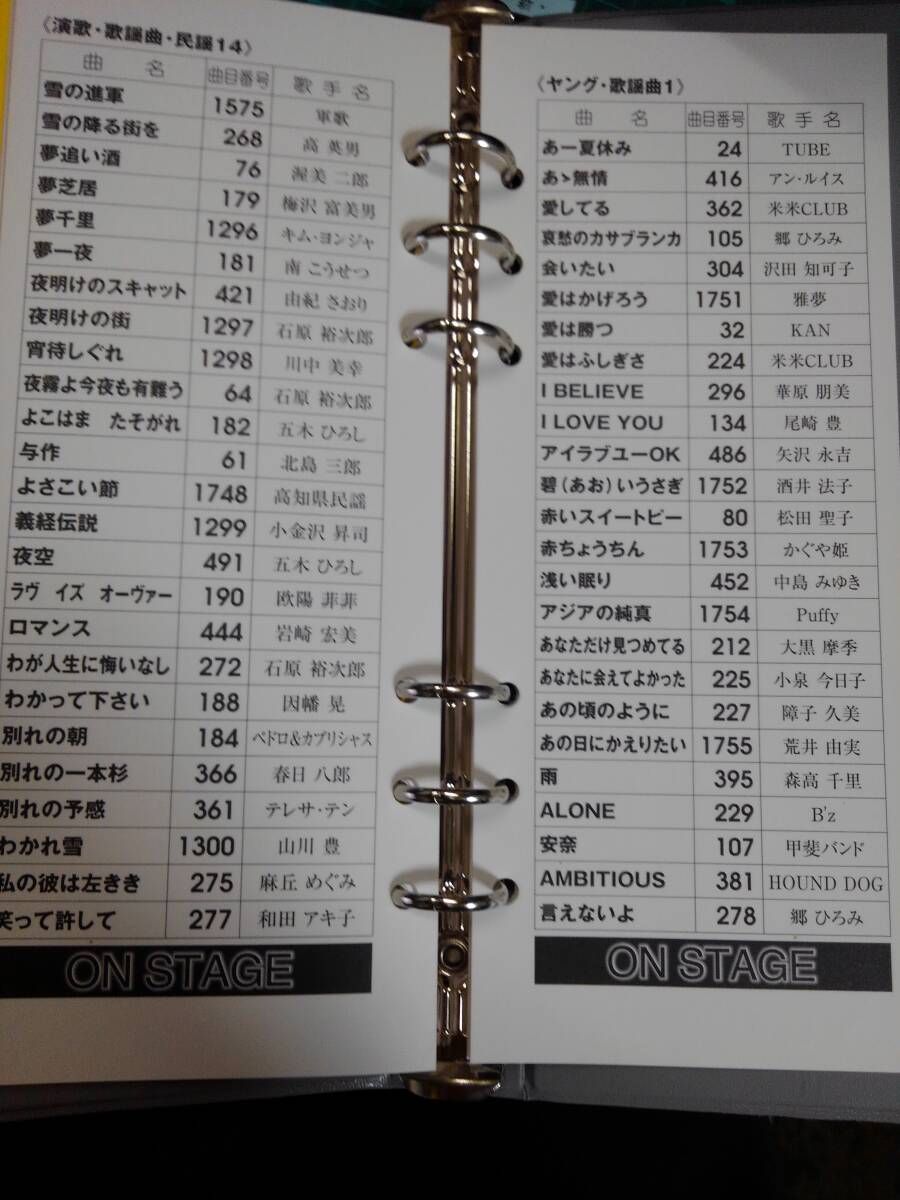 〈演歌・歌謡曲・民謡14〉
曲 名 曲目番号 歌 手 名
雪の進軍 1575 軍歌
雪の降る街を 268 高 英男
夢追い酒 76 渥美 二郎
夢芝居 179 梅沢 富美男
夢千里 1296 キム・ヨンジャ
夢一夜 181 南 こうせつ
夜明けのスキャット 421 由紀 さおり
夜明けの街 1297 石原 裕次郎
宵待しぐれ 1298 川中 美幸
夜霧よ今夜も有難う 64 石原 裕次郎
よこはま たそがれ 182 五木 ひろし
与作 61 北島 三郎
よさこい節 1748 高知県民謡
義経伝説 1299 小金沢 昇司
夜空 491 五木 ひろし
ラヴ イズ オーヴァー 190 欧陽 菲菲
ロマンス 444 岩崎 宏美
わが人生に悔いなし 272 石原 裕次郎
わかって下さい 188 因幡 晃
別れの朝 184 ペドロ&カプリシャス
別れの一本杉 366 春日 八郎
別れの予感 361 テレサ・テン
わかれ雪 1300 山川 豊
私の彼は左きき 275 麻丘 めぐみ
笑って許して 277 和田 アキ子
ON STAGE
〈ヤング・歌謡曲1〉
曲 名 曲目番号 歌 手 名
あー夏休み 24 TUBE
あゝ無情 416 アン・ルイス
愛してる 362 米米CLUB
哀愁のカサブランカ 105 郷 ひろみ
会いたい 304 沢田 知可子
愛はかげろう 1751 雅夢
愛は勝つ 32 KAN
愛はふしぎさ 224 米米CLUB
I BELIEVE 296 華原 朋美
I LOVE YOU 134 尾崎 豊
アイラブユーOK 486 矢沢 永吉
碧(あお)いうさぎ 1752 酒井 法子
赤いスイートピー 80 松田 聖子
赤ちょうちん 1753 かぐや姫
浅い眠り 452 中島 みゆき
アジアの純真 1754 Puffy
あなただけ見つめてる 212 大黒 摩季
あなたに会えてよかった 225 小泉 今日子
あの頃のように 227 障子 久美
あの日にかえりたい 1755 荒井 由実
雨 395 森高 千里
ALONE 229 B'z
安奈 107 甲斐バンド
AMBITIOUS 381 HOUND DOG
言えないよ 278 郷 ひろみ
ON STAGE